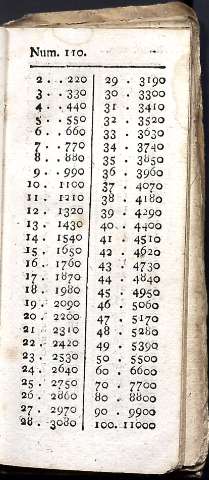 Num. 110.
2 . . 220
3 . . 330
4 . . 440
5 . . 550
6 . . 660
7 . . 770
8 . . 880
9 . . 990
10 . 1100
11 . 1210
12 . 1320
13 . 1430
14 . 1540
15 . 1650
16 . 1760
17 . 1870
18 . 1980
19 . 2090
20 . 2200
21 . 2310
22 . 2420
23 . 2530
24 . 2640
25 . 2750
26 . 2860
27 . 2970
28 . 3080
29 . 3190
30 . 3300
31 . 3410
32 . 3520
33 . 3630
34 . 3740
35 . 3850
36 . 3960
37 . 4070
38 . 4180
39 . 4290
40 . 4400
41 . 4510
42 . 4620
43 . 4730
44 . 4840
45 . 4950
46 . 5060
47 . 5170
48 . 5280
49 . 5390
50 . 5500
60 . 6600
70 . 7700
80 . 8800
90 . 9900
100. 11000